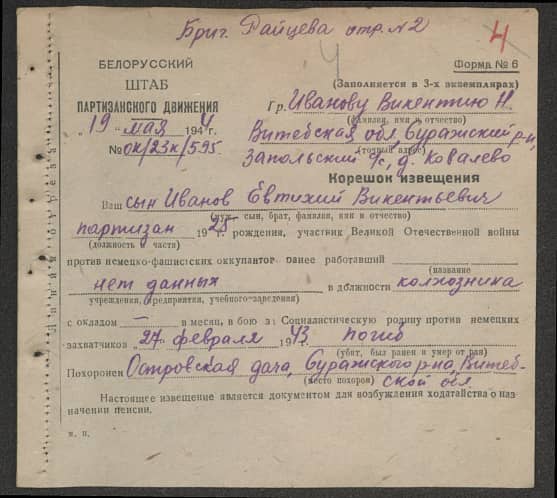 Бриг. Райцева отр. №2
4
4
БЕЛОРУССКИЙ
ШТАБ
ПАРТИЗАНСКОГО ДВИЖЕНИЯ
„19" мая 1944 г.
№ ОК/23К/595
Форма № 6
(Заполняется в 3-х экземплярах)
Гр. Иванову Викентию Н.
(фамилия, имя и отчество)
Витебская обл. Суражский р-н,
(точный адрес)
Запольский с/с, д. Ковалево
Корешок извещения
Ваш сын Иванов Евтихий Викентьевич
(муж, сын, брат, фамилия, имя и отчество)
партизан 1928 г. рождения, участник Великой Отечественной войны
(должность и часть)
против немецко-фашистских оккупантов ранее работавший
(название
нет данных в должности колхозника
учреждения, предприятия, учебного-заведения)
с окладом — в месяц, в бою за Социалистическую родину против немецких
захватчиков „27" февраля 1943 г. погиб
(убит, был ранен и умер от ран)
Похоронен Островская дача, Суражского р-на, Витеб-
(место похорон)
ской обл.
Настоящее извещение является документом для возбуждения ходатайства о наз
начении пенсии.
м. п.